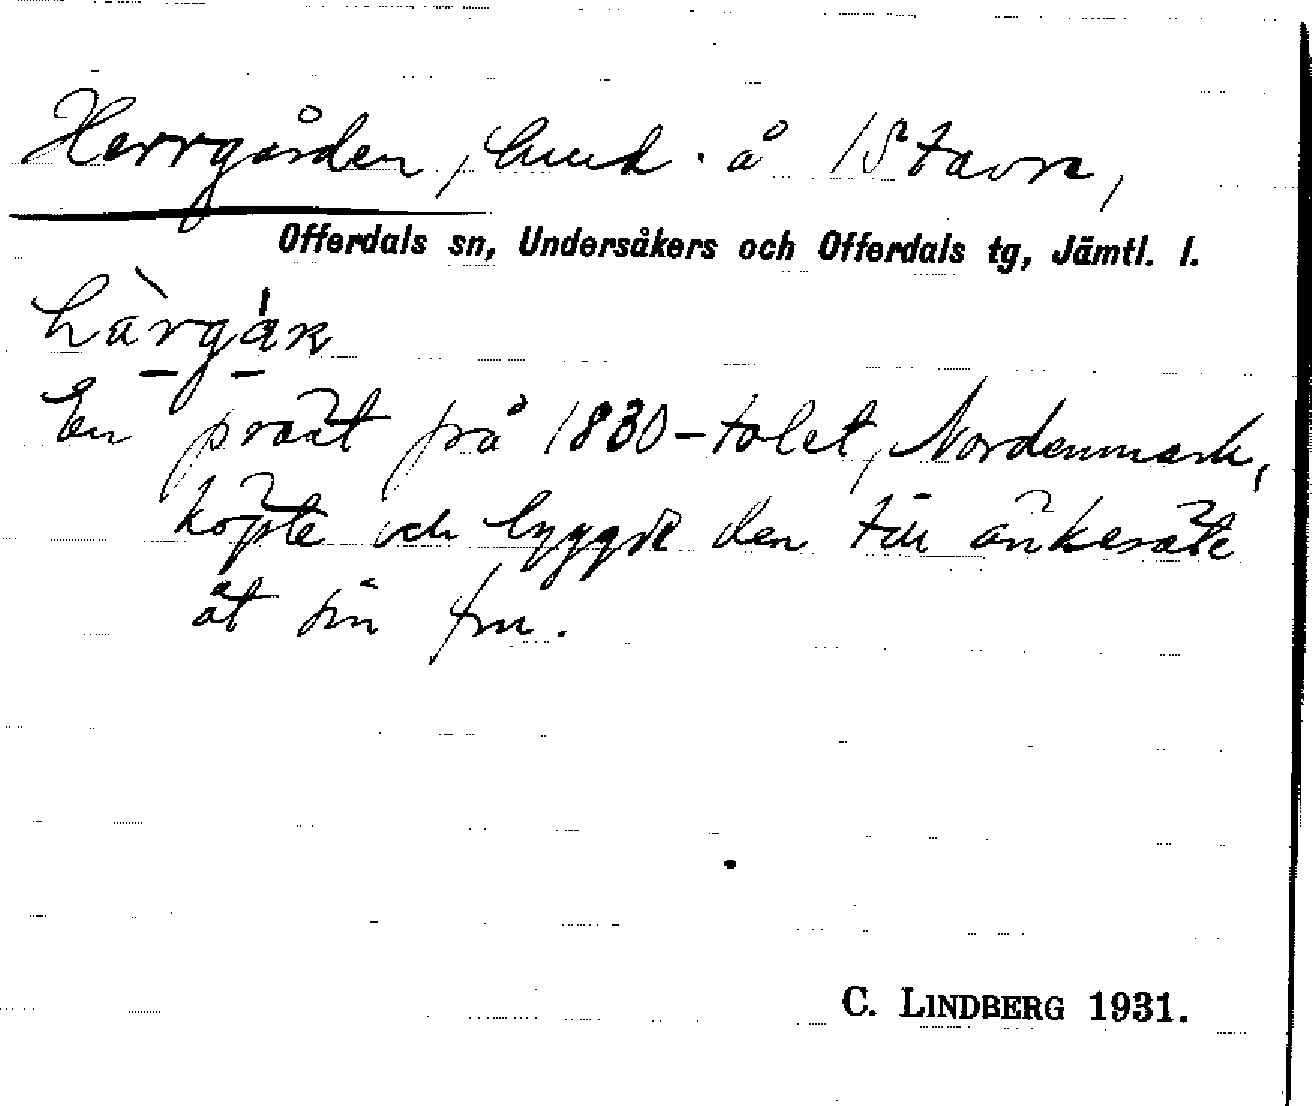 Herrgården, hmd. å 1 Stavre,
Offerdals sn, Undersåkers och Offerdals tg, Jämtl. l.
En präst på 1830-talet, Nordenmark,
köpte och byggde den till änkesäte
åt sin fru.
C. LINDBERG 1931.